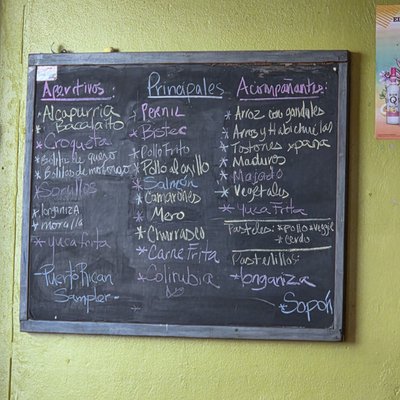 Aperitivos:
*Alcapurria
*Bacalaito
*Croqueta
*Bolita de queso
*Bolitas de
*Sorullos
*longaniza
*morcilla
*yuca frita
Puerto Rican
Sampler-
Principales
*Pernil
*Bistec
*Pollo Frito
*Pollo al ajillo
*Salmón
*Camarones
*Mero
*Churrasco
*Carne Frita
*Colirubia
Acompañantes:
*Arroz con gandules
*Arroz y Habichuelas
*Tostones *pana
*Maduros
*Majado
*Vegetales
*Yuca Frita
Pasteles: *pollo *veggie
*cerdo
Pastelillos:
*longaniza
*Sopón